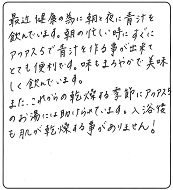 最近健康の為に朝と夜に青汁を
飲んでいます。朝の忙しい時にすぐに
アクアスラで青汁を作る事が出来て
とても便利です。味もまろやかで美味
しく飲んでいます。
また、これからの乾燥する季節にアクアスラ
のお湯には助けられています。入浴後
も肌が乾燥する事がありません!